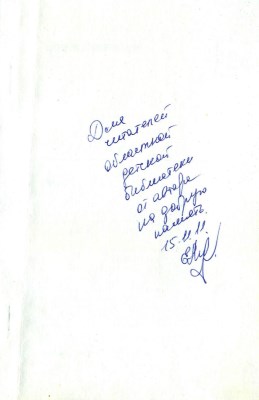 Для
читателей
областной
детской
библиотеки
от автора
на добрую
память.
15.11.11.